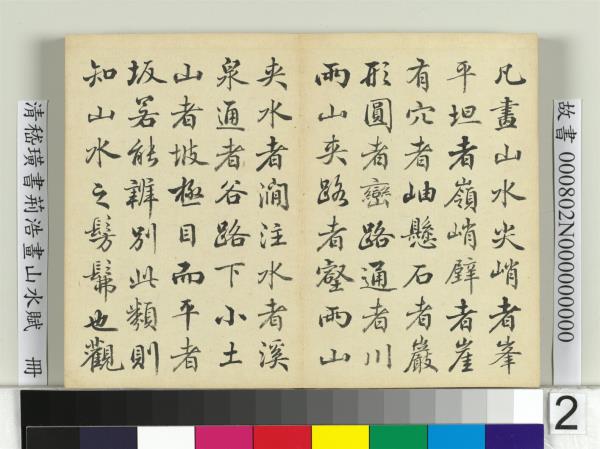 凡畫山水尖峭者峯
平坦者嶺峭壁者崖
有穴者岫懸石者巖
形圓者巒路通者川
兩山夾路者壑兩山
夾水者澗注水者溪
泉通者谷路下小土
山者坡極目而平者
坂若能辨別此類則
知山水之髣髴也觀
故書 000802N000000000
清嵇璜書荊浩畫山水賦 冊
2